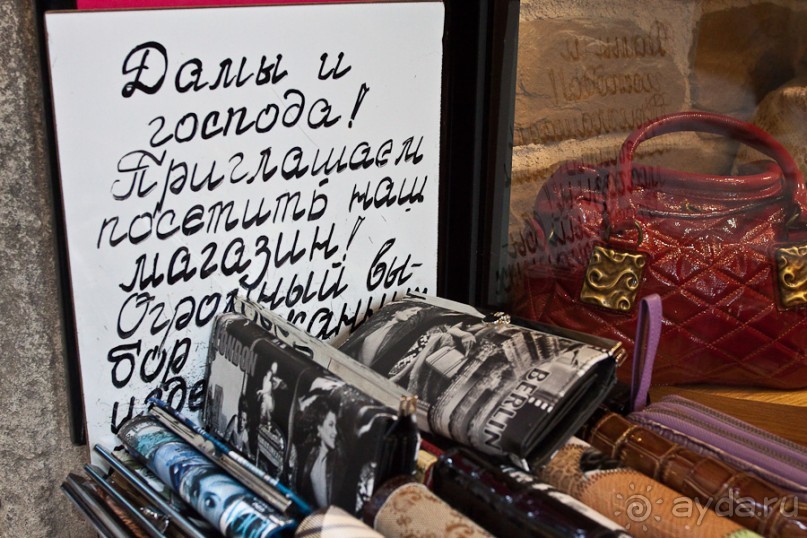 Дамы и
господа!
Приглашаем
посетить наш
магазин!
Огромный вы-
бор
BERLIN
ayda.ru